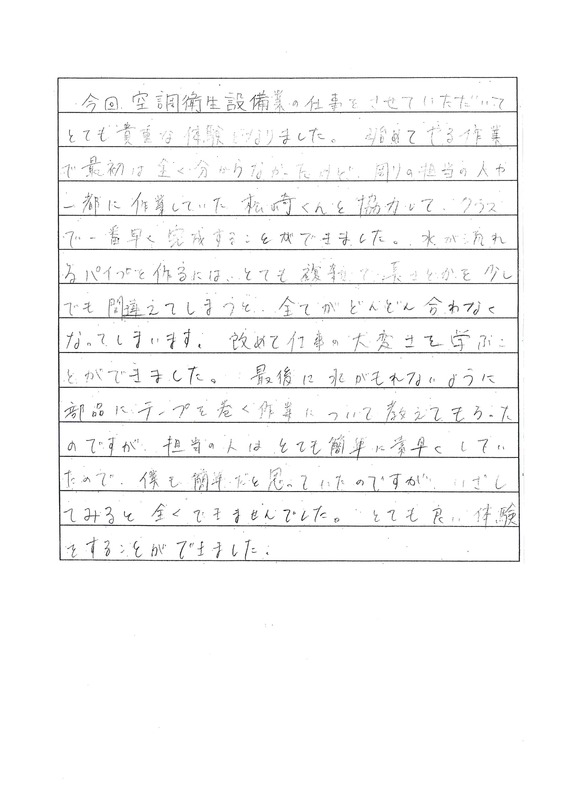 今回、空調衛生設備業の仕事をさせていただいて
とても貴重な体験となりました。初めてやる作業
で最初は全く分からなかったけど、周りの担当の人や
一都に作業していた松崎くんと協力して、クラス
で一番早く完成することができました。水が流れ
るパイプを作るには、とても複雑で長さとかを少し
でも間違えてしまうと、全てがどんどん合わなく
なってしまいます。改めて仕事の大変さを学ぶこ
とができました。最後に水がもれないように
部品にテープを巻く作業について教えてもらった
のですが、担当の人はとても簡単に素早くしてい
たので、僕も簡単だと思っていたのですが、いざし
てみると全くできませんでした。とても良い体験
をすることができました。